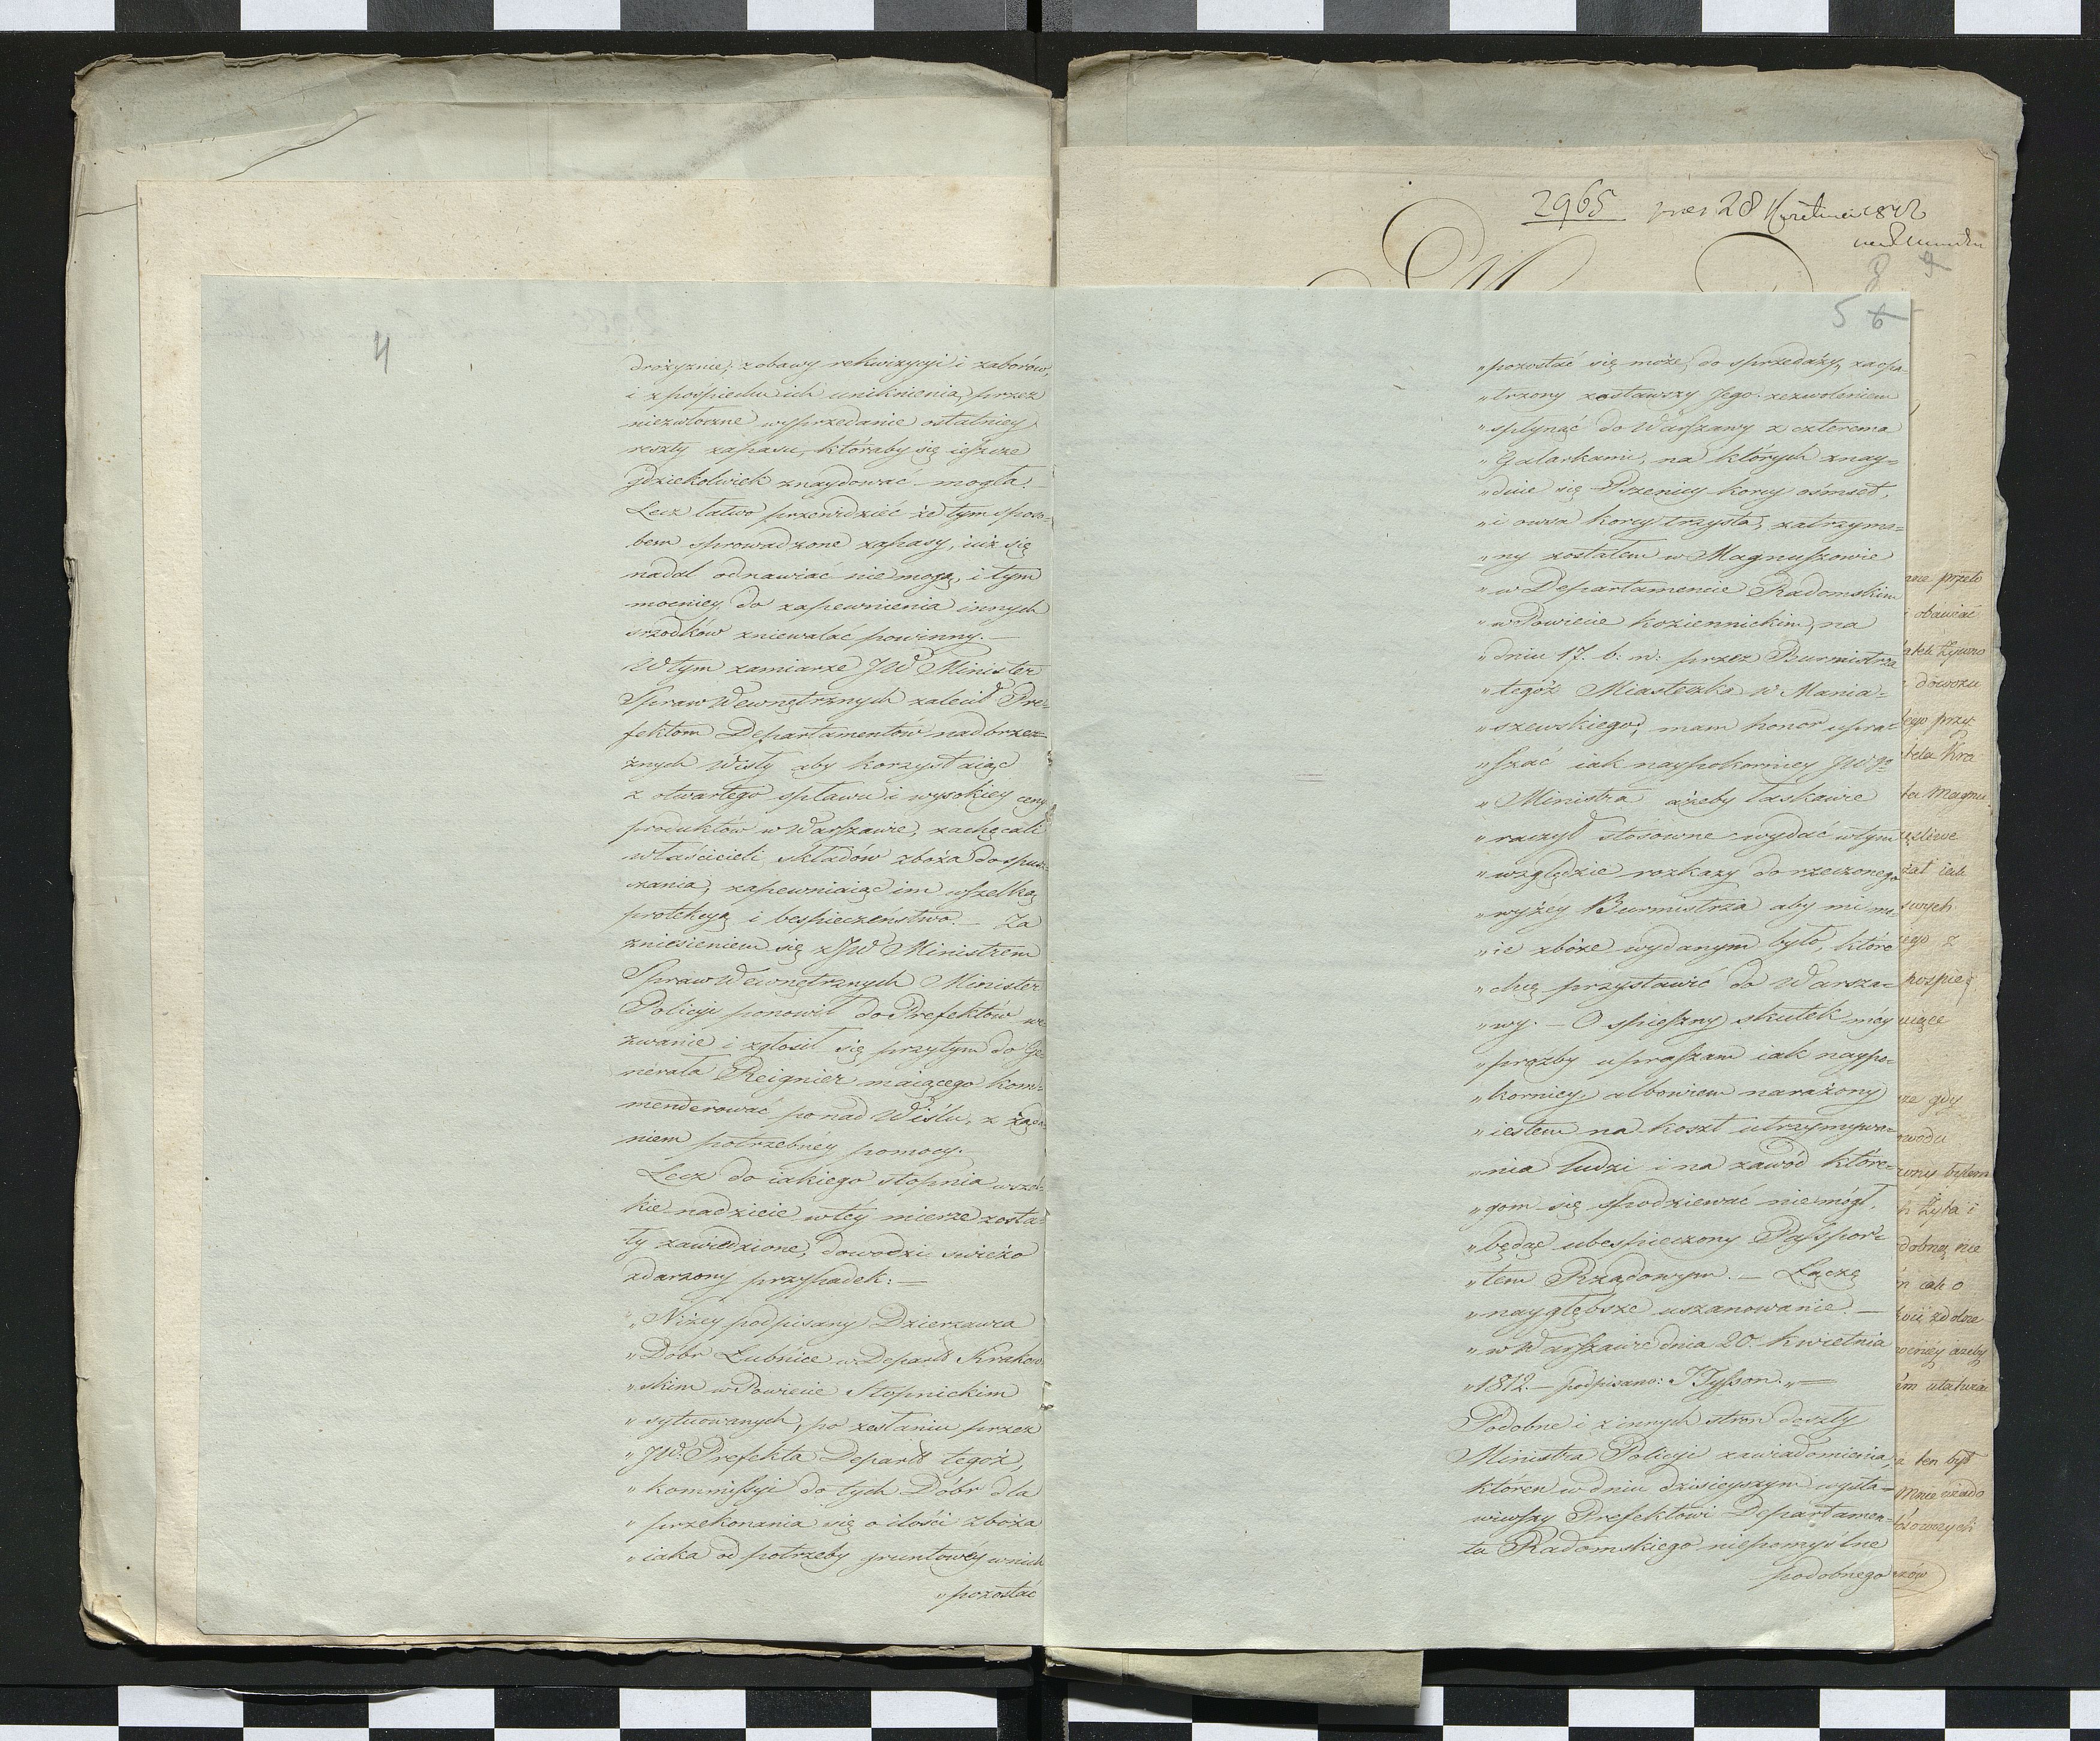 4
drożyznie, z obawy rekwizycyi i zaborów,
i z pośpiechu ich uniknienia, przez
niezwłoczne wyprzedanie ostatniey
reszty zapasu, któraby się ieszcze
gdziekolwiek znaydować mogła.
Lecz łatwo przewidzieć że tym sposo=
bem sprowadzone zapasy, iuż się
nadal odnawiać nie mogą, i tym
mocniey do zapewnienia innych
srzodków zniewalać powinny. —
W tym zamiarze JW Minister
Spraw Wewnętrznych zalecił Pre=
fektom Departamentów nadbrze=
żnych Wisły aby korzystaiąc
z otwartego spławu i wysokiey ceny
produktów w Warszawie, zachęcali
właścicieli składów zboża do spusz=
czania, zapewniaiąc im wszelką
protekcyą i bespieczeństwo. — Za
zniesieniem się z JW Ministrem
Spraw Wewnętrznych Minister
Policyi ponowił do Prefektów we
zwanie i zgłosił się przytym do Ge
nerała Reignier maiącego kom=
menderować ponad Wisłą, z żąda=
niem potrzebnéy pomocy. —
Lecz do iakiego stopnia wszel=
kie nadzieie w téy mierze zosta=
ły zawiedzione, dowodzi swieżo
zdarzony przypadek: —
„Niżey podpisany Dzierzawca
„Dóbr Łubnice w Departt Krakow
„skim w Powiecie Stopnickim
„sytuowanych, po zesłaniu przez
„JW. Prefekta Departt tegóż,
„kommissyi do tych Dóbr dla
„przekonania się o ilości zboża
„iaka od potrzeby gruntowéy w nich
„pozostać
2965 28 Kwietnia 1812
8 9
5 6
„pozostać się może, do sprzedaży, zaopa=
„trzony zostawszy Jego zezwoleniem
„spłynąć do Warszawy z czterema
„Galarkami, na których znay=
„duie się Pszenicy korcy ośmset,
„i owsa korcy trzysta, zatrzyma=
„ny zostałem w Magnuszowie
„w Departamencie Radomskim
„w Powiecie koziennickim, na
„dniu 17. b: m: przez Burmistrza
„tegóż Miasteczka W Mania=
„szewskiego, mam honor upra=
„szać iak naypokorniey JWgo
„Ministra ażeby łaskawie
„raczył stosowne wydać w tym
„względzie rozkazy do rzeczonego
„wyżey Burmistrza aby mi mo=
„ie zboże wydanym było, które
„chcę przystawić do Warsza=
„wy. — O spieszny skutek méy
„proźby upraszam iak naypo=
„korniey, albowiem narażony
„iestem na koszt utrzymywa=
„nia ludzi i na zawód które=
„gom się spodziewać nie mógł,
„będąc ubespieczony Passpor=
„tem Rządowym. — Łączę
„naygłębsze uszanowanie. —
„w Warszawie dnia 20. kwietnia
„1812. — podpisano: J Tysson. „ —
Podobne i z innych stron doszły
Ministra Policyi zawiadomienia,
któren w dniu dzisieyszym wysta=
wiwszy Prefektowi Departamen=
tu Radomskiego niepomyślne
podobnego
przeto
obawiać
dowozu
tego przy
ta Magnu
gdy
byłem
żyta i
ażeby
ten był